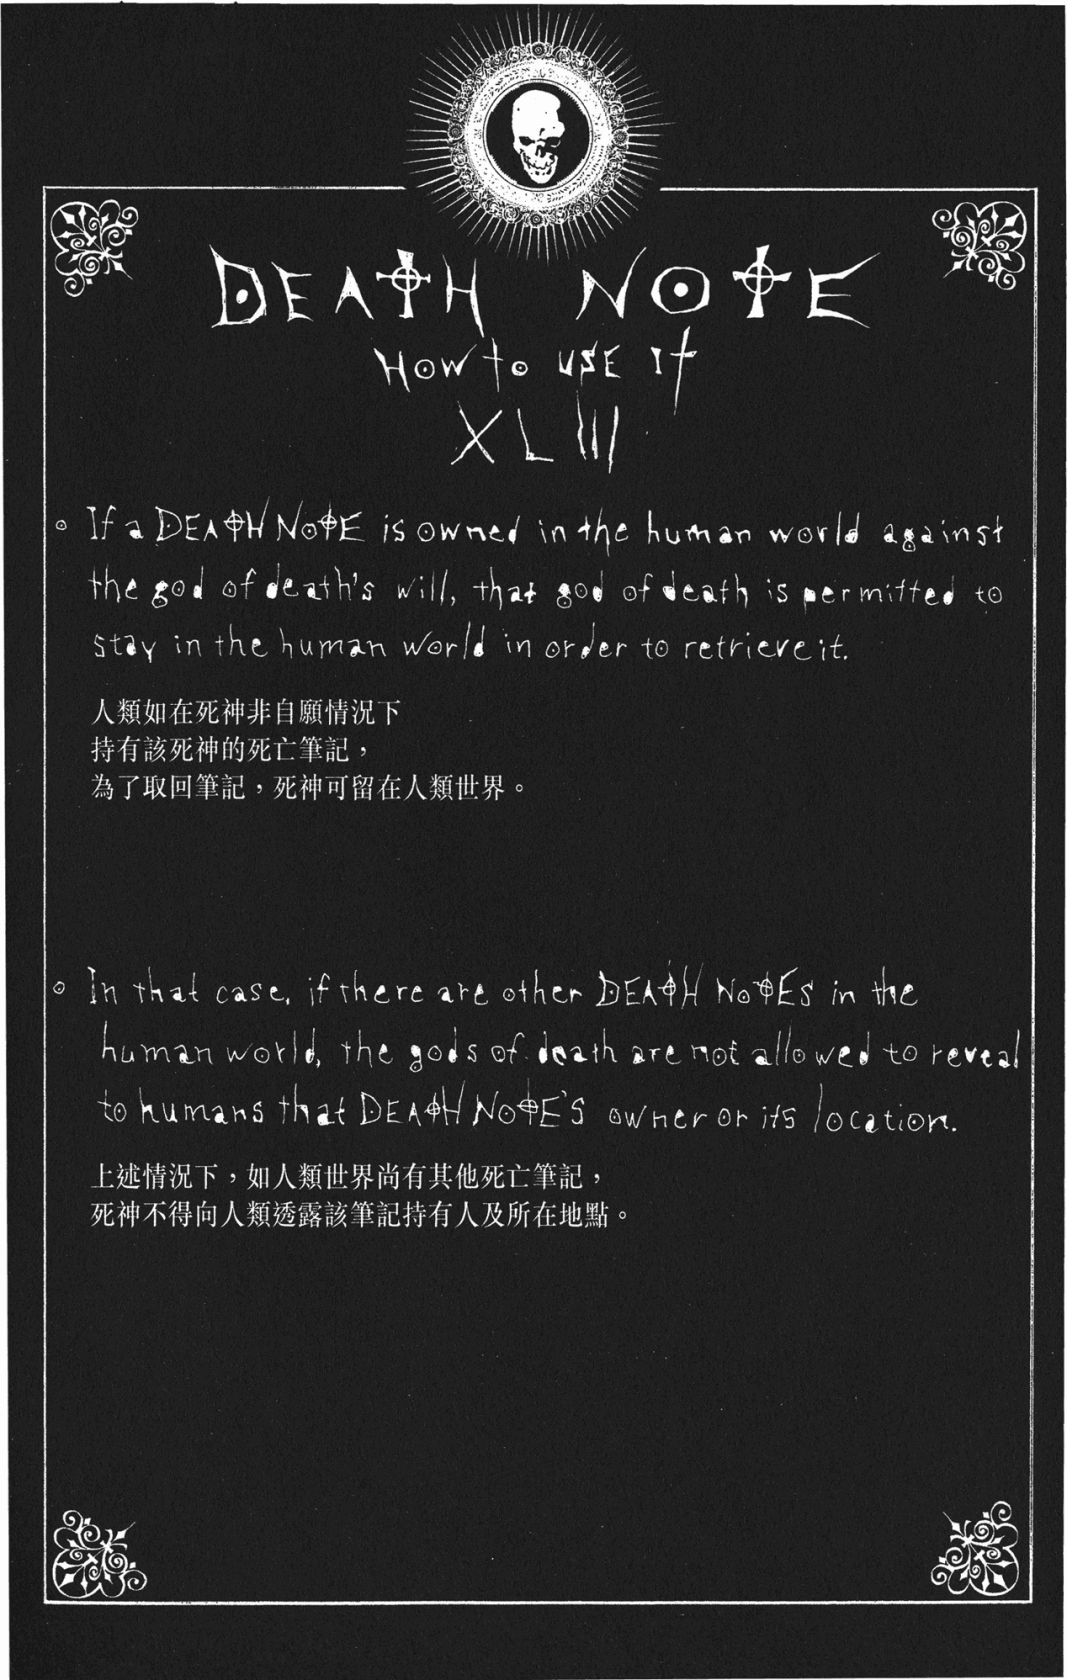 DEATH NOTE
HOW to USE It
XLIII
If a DEATH NOTE is owned in the human world against
the god of death's will, that god of death is permitted to
stay in the human world in order to retrieve it.
人類如在死神非自願情況下
持有該死神的死亡筆記，
為了取回筆記，死神可留在人類世界。
In that case, if there are other DEATH NOTEs in the
human world, the gods of death are not allowed to reveal
to humans that DEATH NOTE'S owner or its location.
上述情況下，如人類世界尚有其他死亡筆記，
死神不得向人類透露該筆記持有人及所在地點。